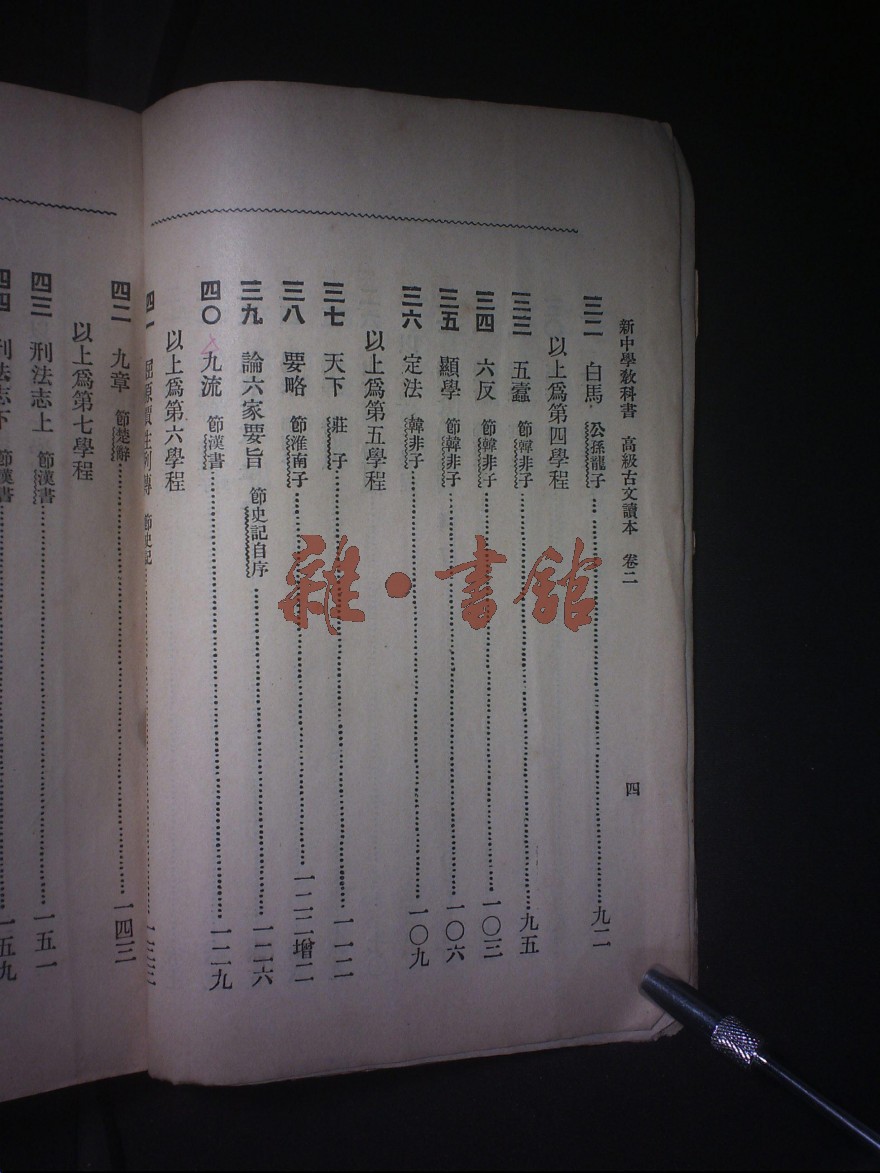 新中學敎科書　高級古文讀本　卷二　四
三二　白馬　公孫龍子……九二
以上爲第四學程
三三　五蠹　節韓非子……九五
三四　六反　節韓非子……一〇三
三五　顯學　節韓非子……一〇六
三六　定法　韓非子……一〇九
以上爲第五學程
三七　天下　莊子……一一二
三八　要略　節淮南子……一二二增二
三九　論六家要旨　節史記自序……一二六
四〇　九流　節漢書……一二九
以上爲第六學程
四一　屈原賈生列傳　節史記……一三三
四二　九章　節楚辭……一四三
以上爲第七學程
四三　刑法志上　節漢書……一五一
四四　刑法志下　節漢書……一五九
雜·書館